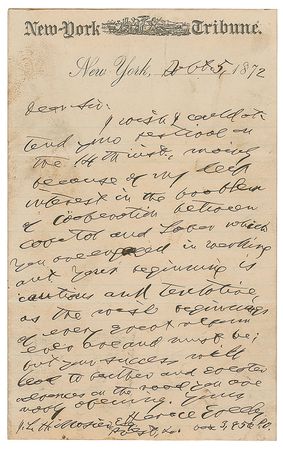 New-York Tribune.
New York, Oct 5, 1872
Dear Sir:
I wish I could at-
tend your festival on
the 14th inst., moving
because of my deep
interest in the problem
of cooperation between
Capital and Labor which
you are engaged in working
out. Your beginning is
cautious and tentative,
as the wise beginnings
of every great reform
ever are and must be;
but your success will
lead to further and greater
advances on the road you are
now opening. Yours
Horace Greeley